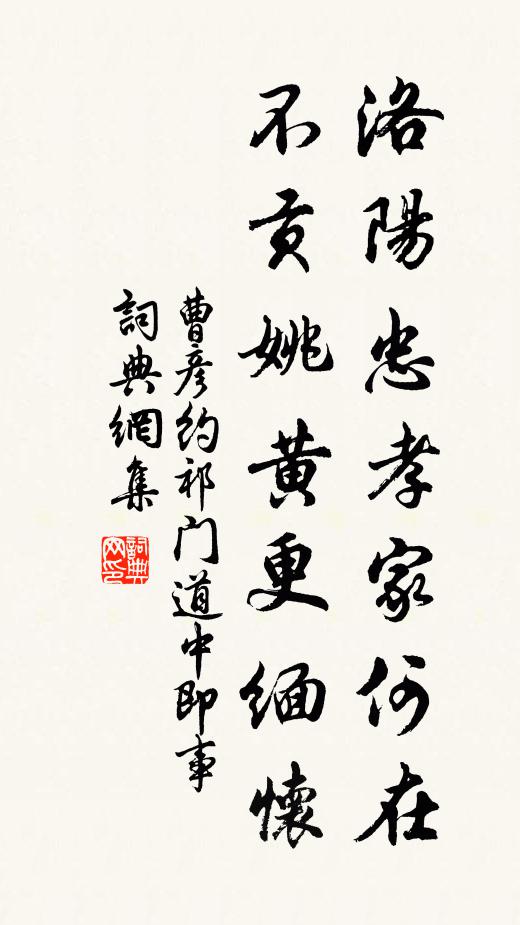 洛陽忠孝家何在
不貢姚黄更緬懷
曹彦約祁门道中即事
詞典網集
詞典网印